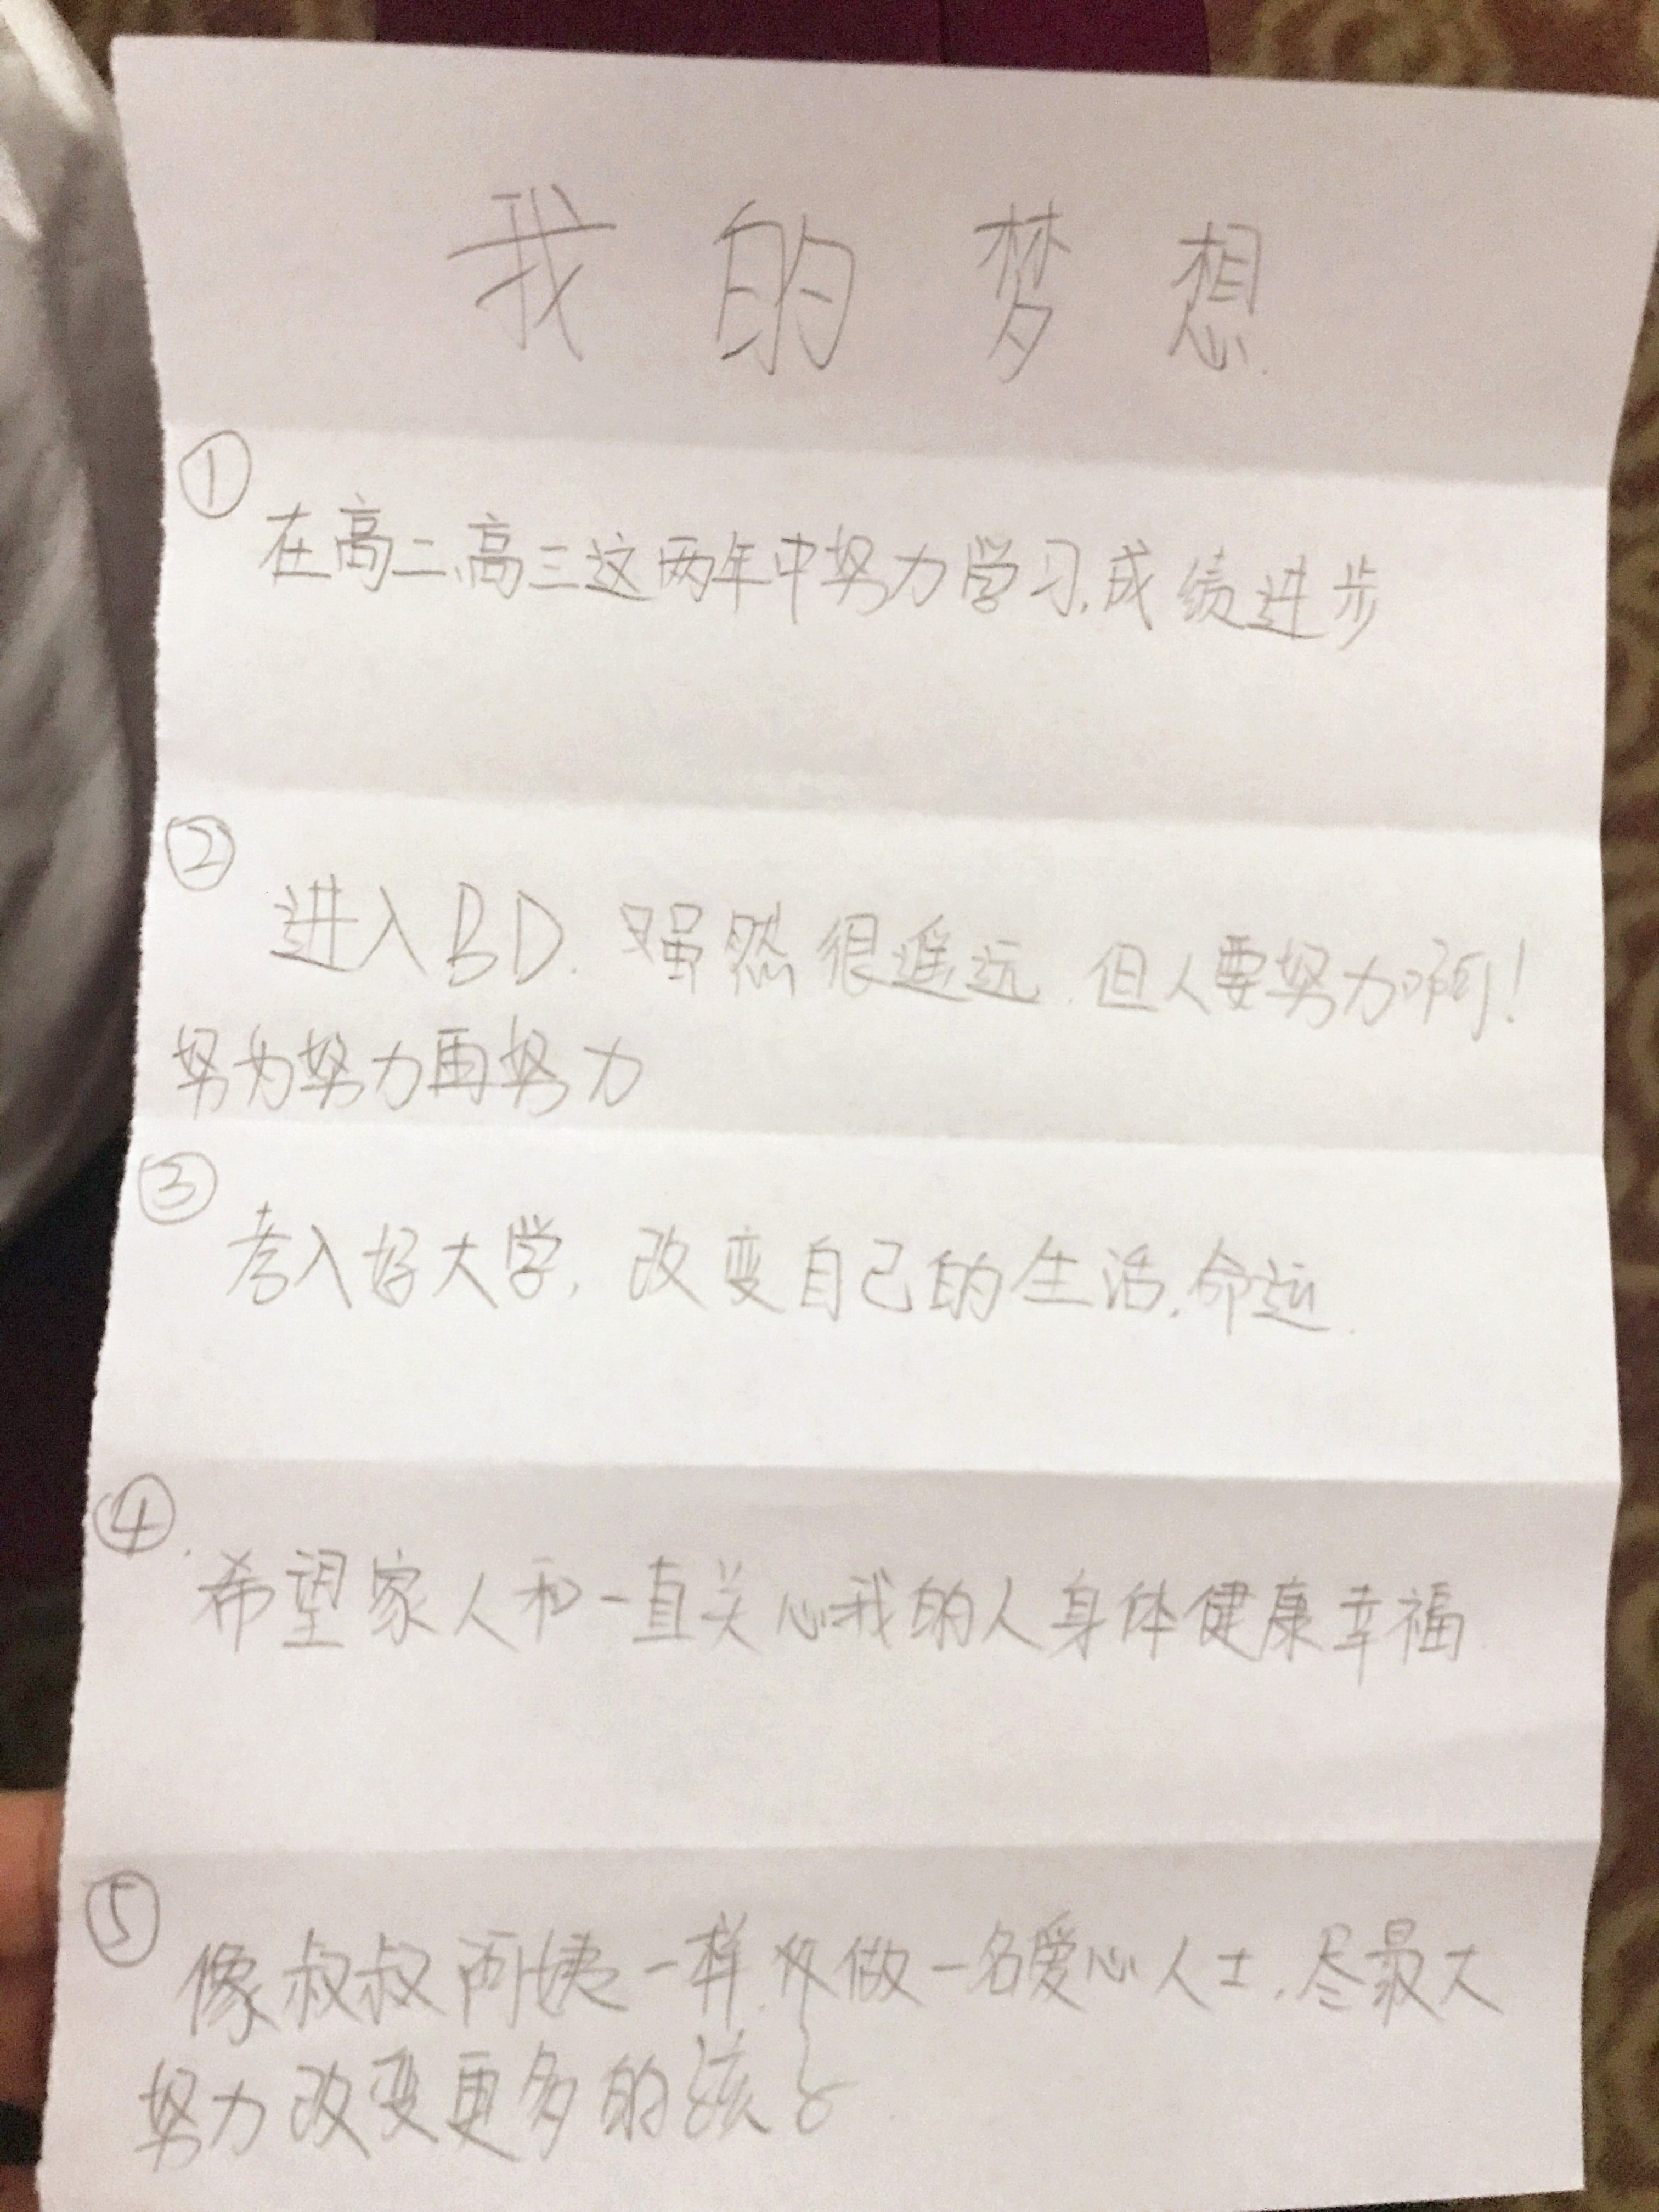 我的梦想
①
在高二、高三这两年中努力学习,成绩进步
②
进入BD.虽然很遥远.但人要努力啊!
努力努力再努力
③
考入好大学,改变自己的生活.命运.
④.
希望家人和一直关心我的人身体健康幸福
⑤
像叔叔阿姨一样,做一名爱心人士,尽最大
努力改变更多的孩子.